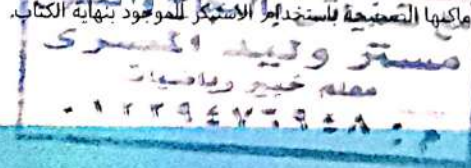 ماكنها الصحيحة باستخدام الاستيكر الموجود بنهاية الكتاب.
مستر وليد المصرى
معلم خبير رياضيات